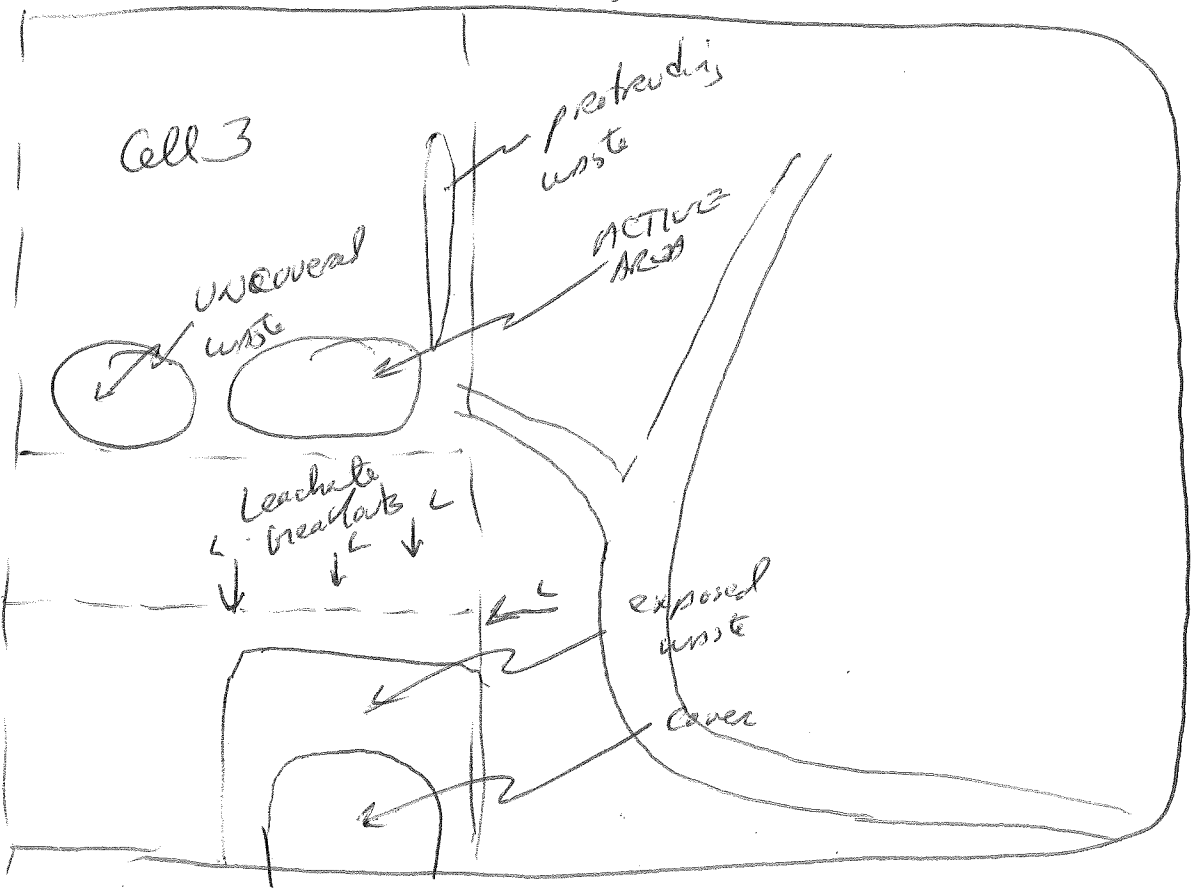 protruding
waste
Cell 3
ACTIVE
AREA
UNCOVERED
waste
Leachate
breakouts L
L
L
L
exposed
waste
cover